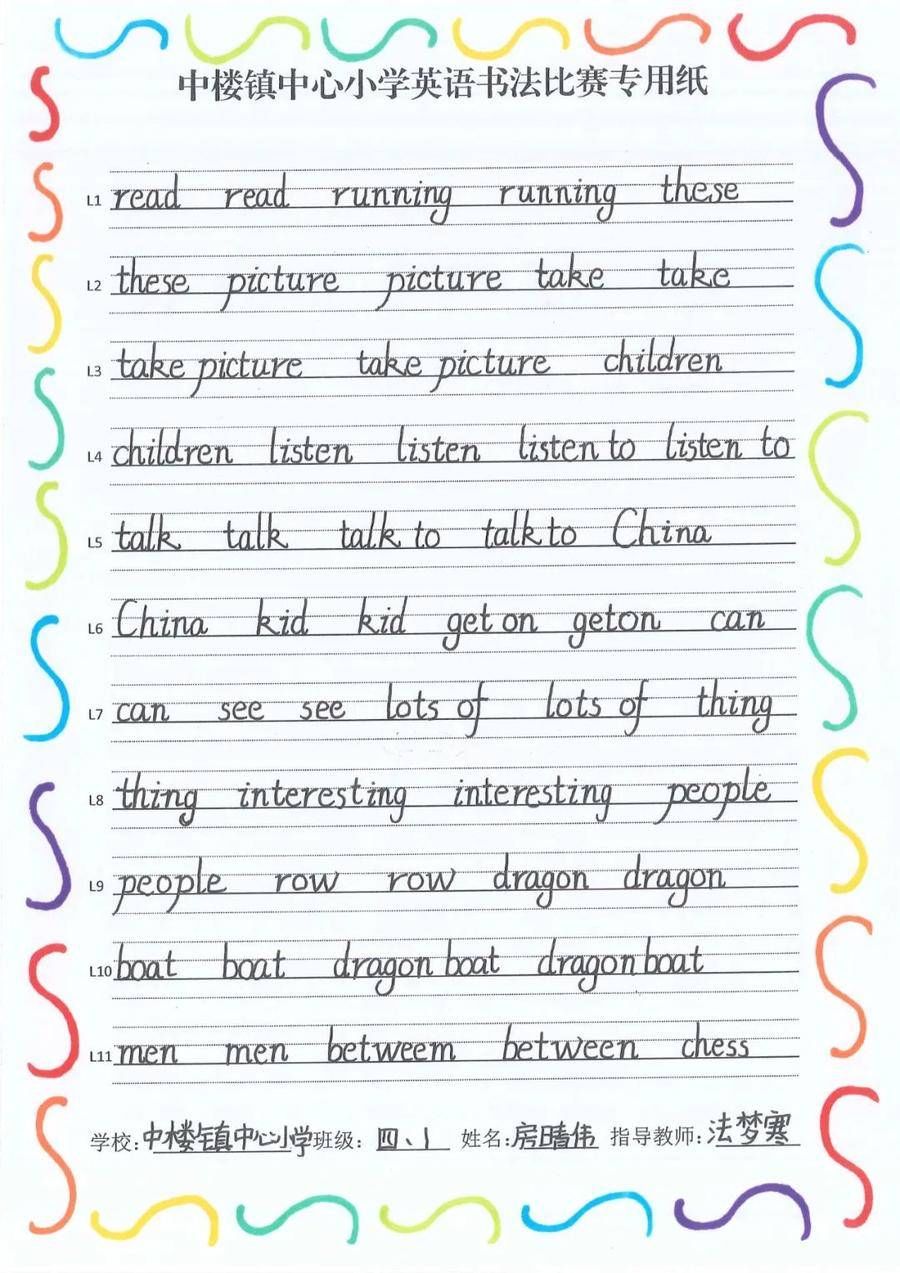 中楼镇中心小学英语书法比赛专用纸
L1 read read running running these
L2 these picture picture take take
L3 take picture take picture children
L4 children listen listen listen to listen to
L5 talk talk talk to talk to China
L6 China kid kid get on get on can
L7 can see see lots of lots of thing
L8 thing interesting interesting people
L9 people row row dragon dragon
L10 boat boat dragon boat dragon boat
L11 men men betweem between chess
学校:中楼镇中心小学班级:四、1 姓名:房晴伟 指导教师:法梦寒